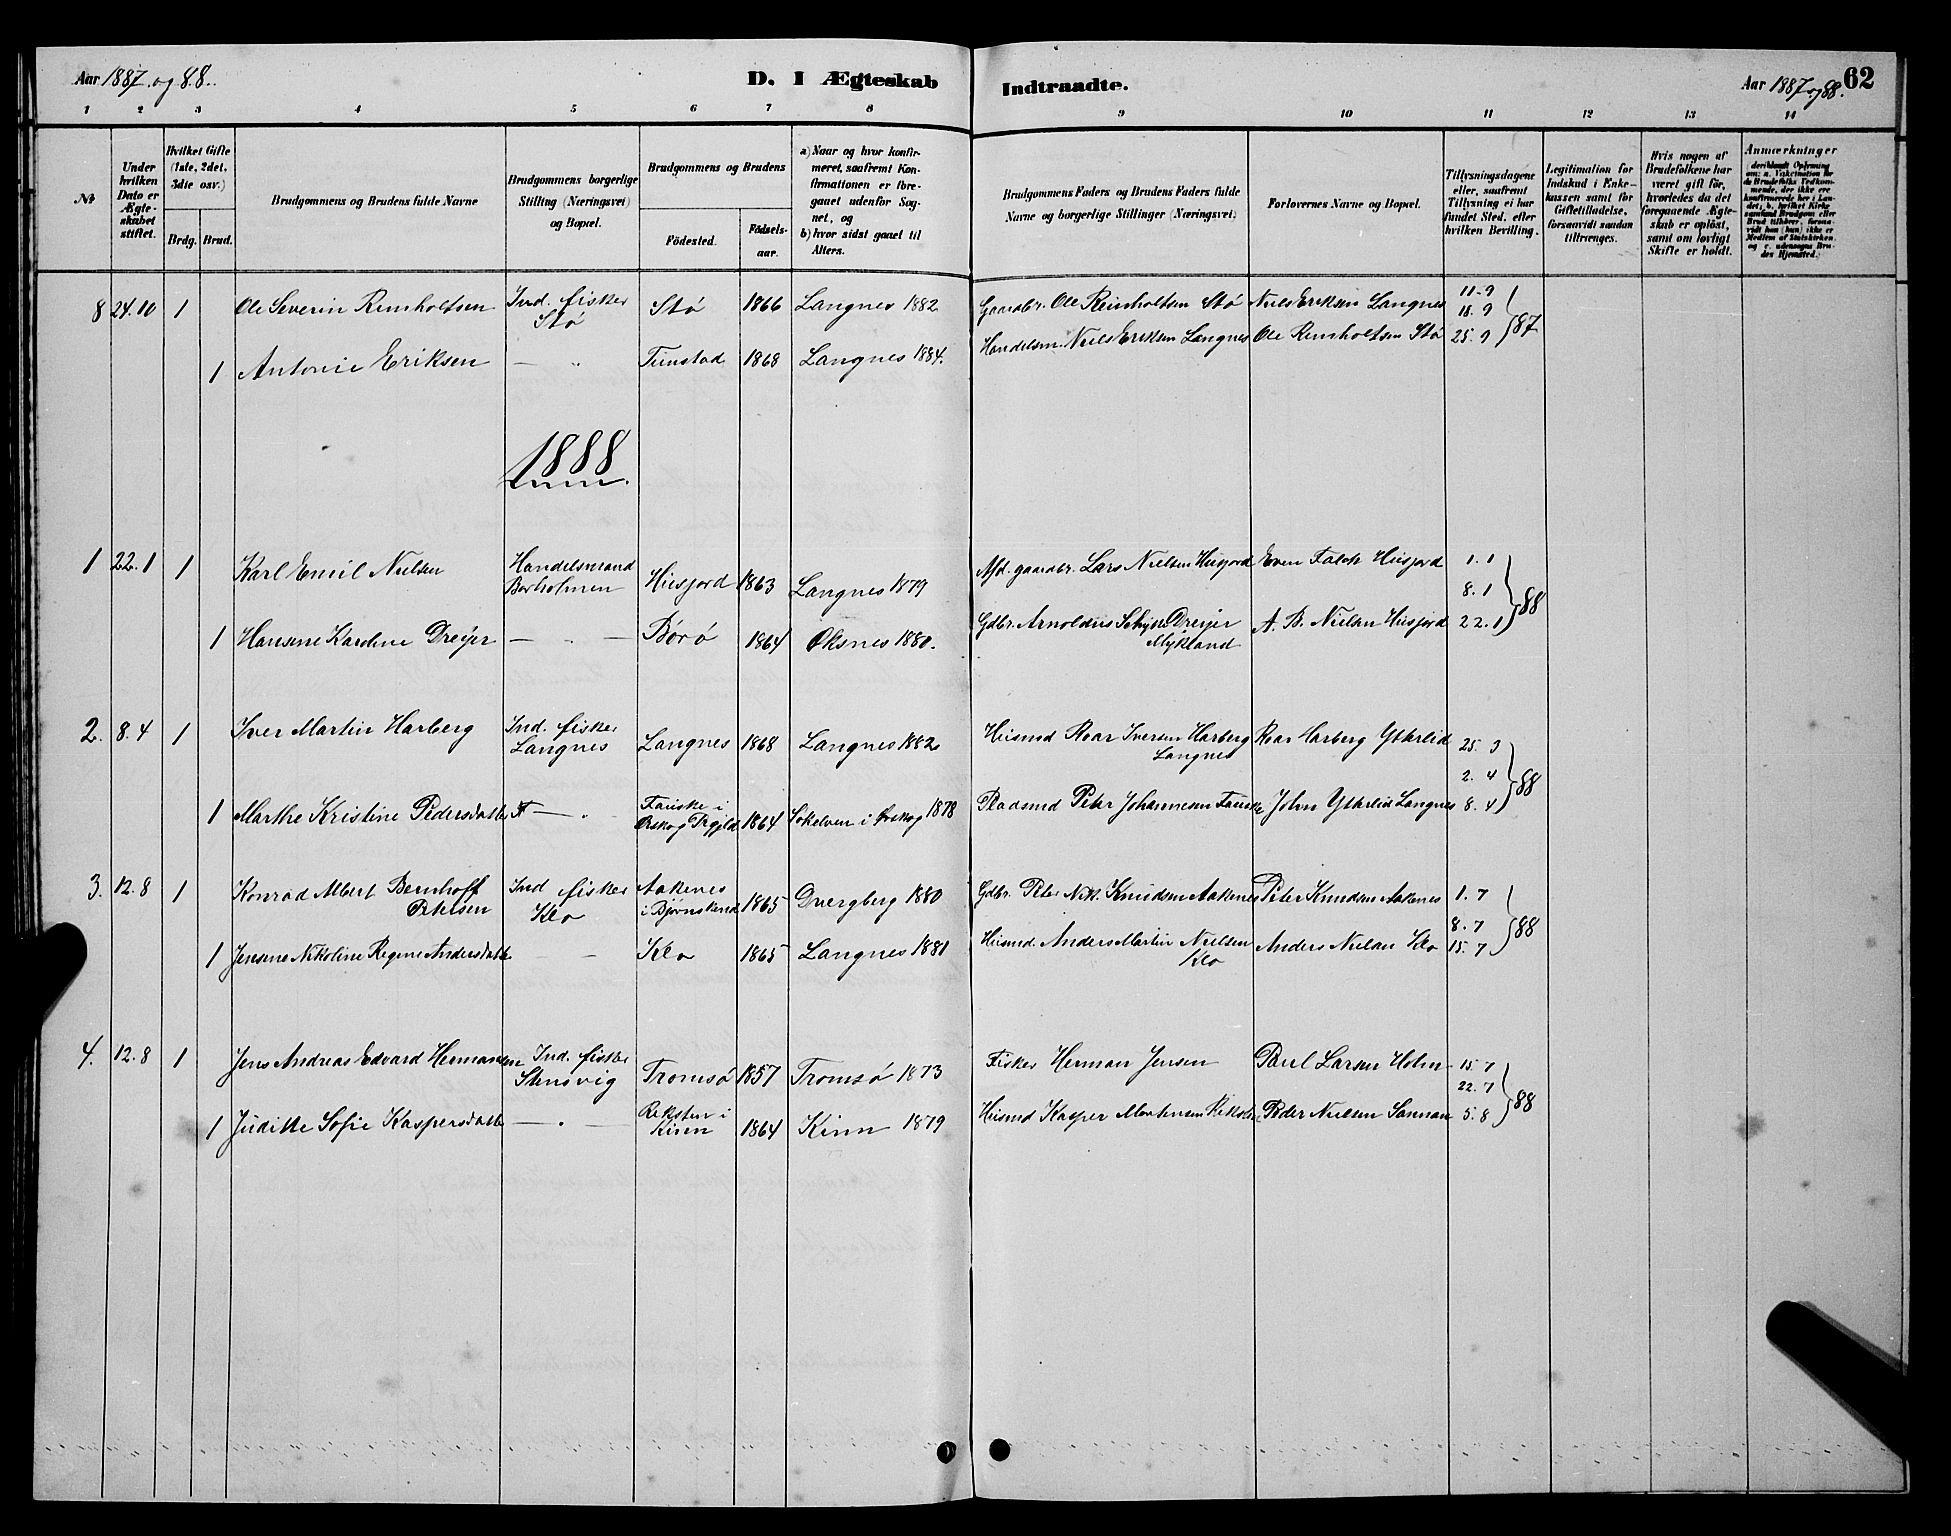 Aar 1887. og 88.
D. I Ægteskab
Indtraadte.
Aar 1887 og 88.
62
1 2 3 4 5 6 7 8
9 10 11 12 13 14
No
Under hvilken Dato er Ægteskabet stiftet.
Hvilket Gifte (1ste, 2det, 3die osv.)
Brdg. Brud.
Brudgommens og Brudens fulde Navne
Brudgommens borgerlige Stilling (Næringsvei) og Bopæl.
Brudgommens og Brudens
Fødested.
Fødselsaar.
a) Naar og hvor konfirmeret, saafremt Konfirmationen er foregaaet udenfor Sognet, og
b) hvor sidst gaaet til Alters.
Brudgommens Faders og Brudens Faders fulde Navne og borgerlige Stillinger (Næringsvei)
Forlovernes Navne og Bopæl.
Tillysningsdagene eller, saafremt Tillysning ei har fundet Sted, efter hvilken Bevilling.
Legitimation for Indskud i Enkekassen samt for Giftetilladelse, forsaavidt saadan tiltrænges.
Hvis nogen af Brudefolkene har været gift før, hvorledes da det foregaaende Ægteskab er opløst, samt om lovligt Skifte er holdt.
Anmærkninger
deriblandt Oplysning om: a. Vakcination for de Brudefolks Vedkommende, der ikke ere konfirmerede her i Landet; b. hvilket Kirkesamfund Brudgom eller Brud tilhører, forsaavidt han (hun) ikke er Medlem af Statskirken, og c. udensogns Brudes Hjemsted.
8 24.10 1 Ole Severin Reinholtsen Ind. fisker Stø Stø 1866 Langnes 1882 Gaardbr. Ole Reinholtsen Stø Niels Eriksen Langnes 11.9 18.9 25.9 } 87
1 Antonie Eriksen — „ Tunstad 1868 Langnes 1884. Handelsm. Niels Eriksen Langnes Ole Reinholtsen Stø
1888
1 22.1 1 Karl Emil Nielsen Handelsmand Borholmen Husjord 1863 Langnes 1879 Afd. gaardbr. Lars Nielsen Husjord Even Falch Husjord 1.1 8.1 22.1 } 88
1 Hansine Karoline Dreyer — „ — Børø 1864 Øksnes 1880. Gdbr. Arnoldus Schytte Dreyer Mykland A. B. Nielsen Husjord
2. 8.4 1 Iver Martin Harberg Ind. fisker Langnes Langnes 1868 Langnes 1882 Husmd Roar Iversen Harberg Langnes Roar Harberg Ytterlid 25.3 2.4 8.4 } 88
1 Marthe Kristine Pedersdatter — „ Fauske i Ørskog Prgjld 1864 Søkelven i Ørskog 1878 Pladsmd Peter Johannesen Fauske John Ytterlid Langnes
3. 12.8 1 Konrad Albert Bernhoff Petersen Ind fisker Klo Aakenes i Bjørnskind 1865 Dvergberg 1880 Gdbr. Peter Nik. Knudsen Aakenes Peter Knudsen Aakenes 1.7 8.7 15.7 } 88
1 Jensine Nikoline Regine Andersdatter — — Klo 1865 Langnes 1881 Husmd Anders Martin Nielsen Klo Anders Nielsen Klo
4. 12.8 1 Jens Andreas Edvard Hermansen Ind. fisker Stensvig Tromsø 1857 Tromsø 1873 Fisker Herman Jensen Paul Larsen Holm 15.7 22.7 5.8 } 88
1 Judithe Sofie Kaspersdatter — „ — Reksten i Kinn 1864 Kinn 1879 Husmd Kasper Mortensen Reksten Peder Nielsen Sannan